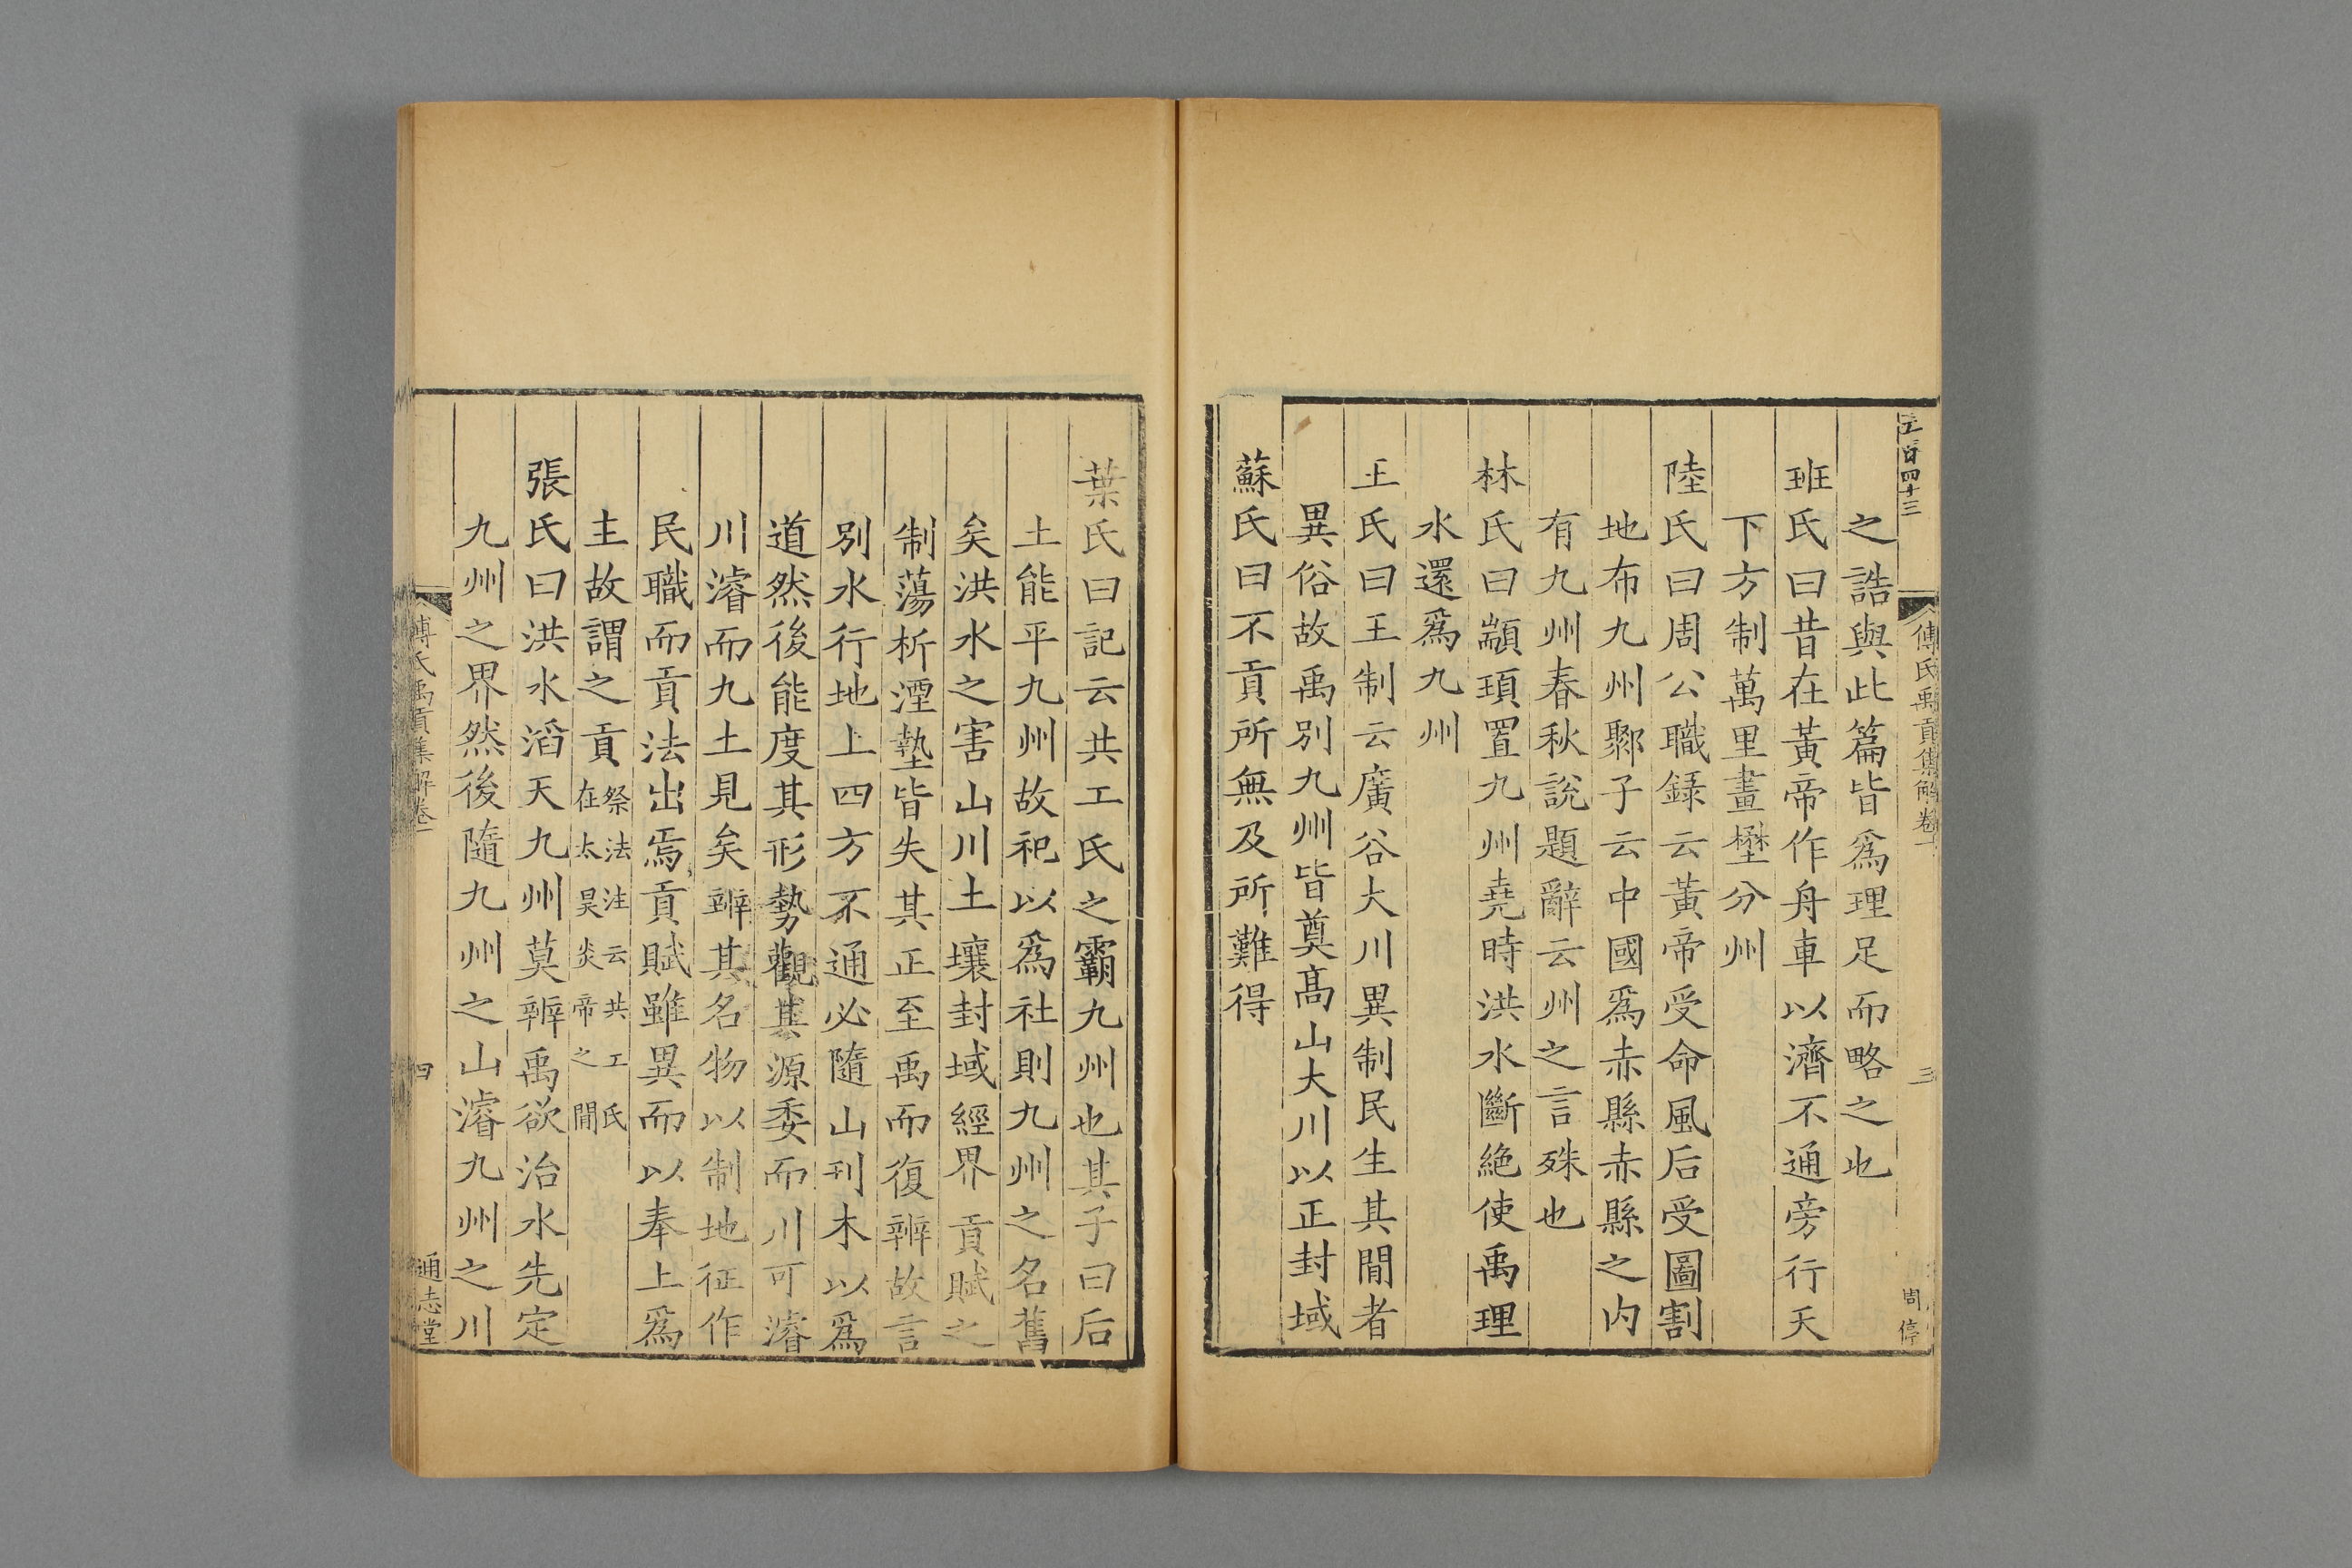 百四十三
傅氏禹貢集解卷一
三
周停
之誥與此篇皆爲理足而略之也
班氏曰昔在黃帝作舟車以濟不通旁行天
下方制萬里畫壄分州
陸氏曰周公職錄云黃帝受命風后受圖割
地布九州鄹子云中國爲赤縣赤縣之內
有九州春秋說題辭云州之言殊也
林氏曰顓頊置九州堯時洪水斷絶使禹理
水還爲九州
王氏曰王制云廣谷大川異制民生其閒者
異俗故禹別九州皆奠髙山大川以正封域
蘇氏曰不貢所無及所難得
葉氏曰記云共工氏之霸九州也其子曰后
土能平九州故祀以爲社則九州之名舊
矣洪水之害山川土壤封域經界貢賦之
制蕩析湮墊皆失其正至禹而復辨故言
別水行地上四方不通必隨山刊木以爲
道然後能度其形勢觀其源委而川可濬
川濬而九土見矣辨其名物以制地征作
民職而貢法出焉貢賦雖異而以奉上爲
主故謂之貢祭法注云共工氏在太昊炎帝之閒
張氏曰洪水滔天九州莫辨禹欲治水先定
九州之界然後隨九州之山濬九州之川
傅氏禹貢集解卷一
四
通志堂